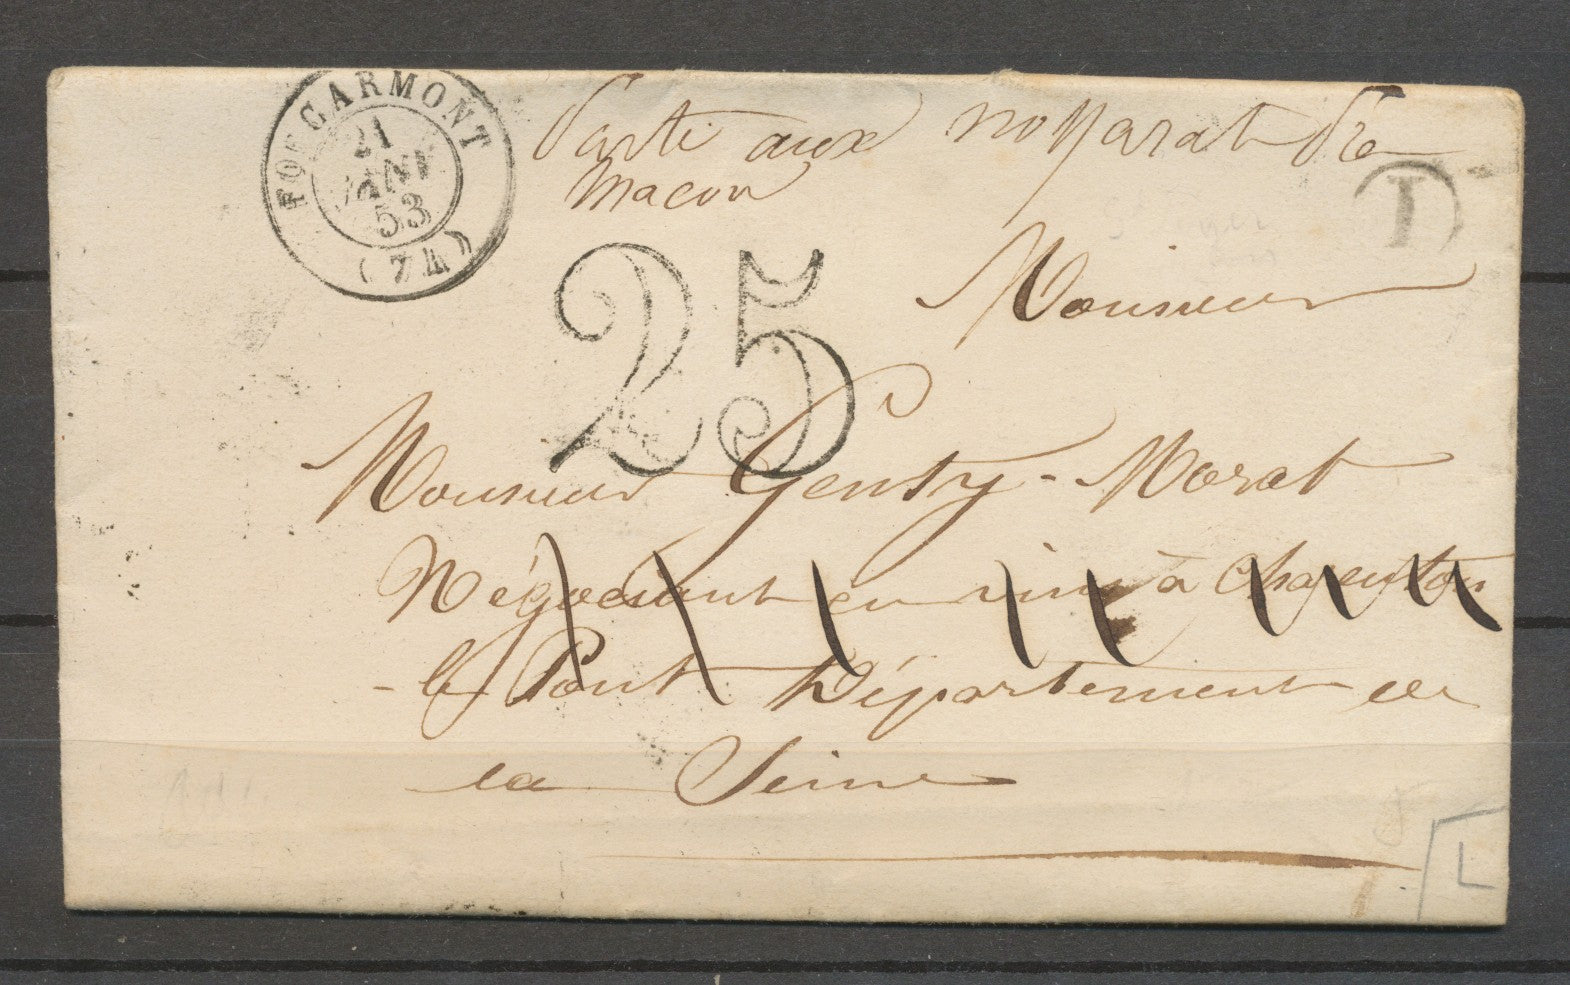 FOUCARMONT
21
JANV
53
(74)
Parti aux no Marat
Macon
I
Monsieur
25
Monsieur Genty-Morat
Négociant en vins à Charenton
- le Pont Département de
la Seine
L